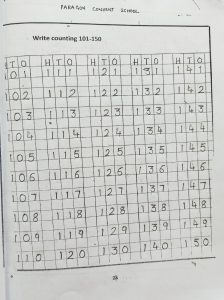 PARAGON CONVENT SCHOOL
Write counting 101-150
H T O H T O H T O H T O H T O
101 111 121 131 141
102 112 122 132 142
103 113 123 133 143
104 114 124 134 144
105 115 125 135 145
106 116 126 136 146
107 117 127 137 147
108 118 128 138 148
109 119 129 139 149
110 120 130 140 150